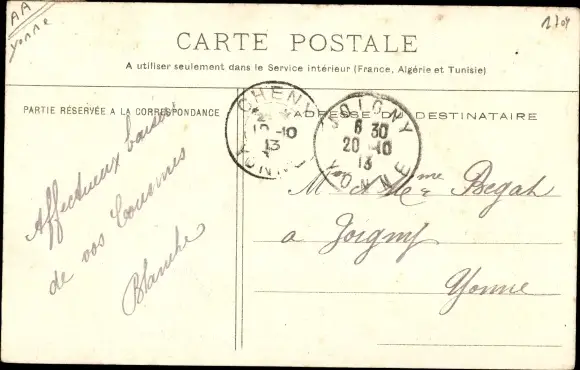 AA
Yonne
1709
CARTE POSTALE
A utiliser seulement dans le Service intérieur (France, Algérie et Tunisie)
PARTIE RÉSERVÉE A LA CORRESPONDANCE
ADRESSE DU DESTINATAIRE
CHENY
10
13
YONNE
JOIGNY
6 30
20 -10
13
YONNE
Affectueux baisers
de vos Cousines
Blanche
M et Mme Begat
a Joigny
Yonne